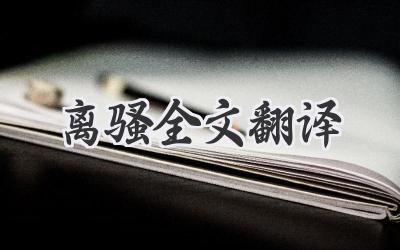 离骚全文翻译